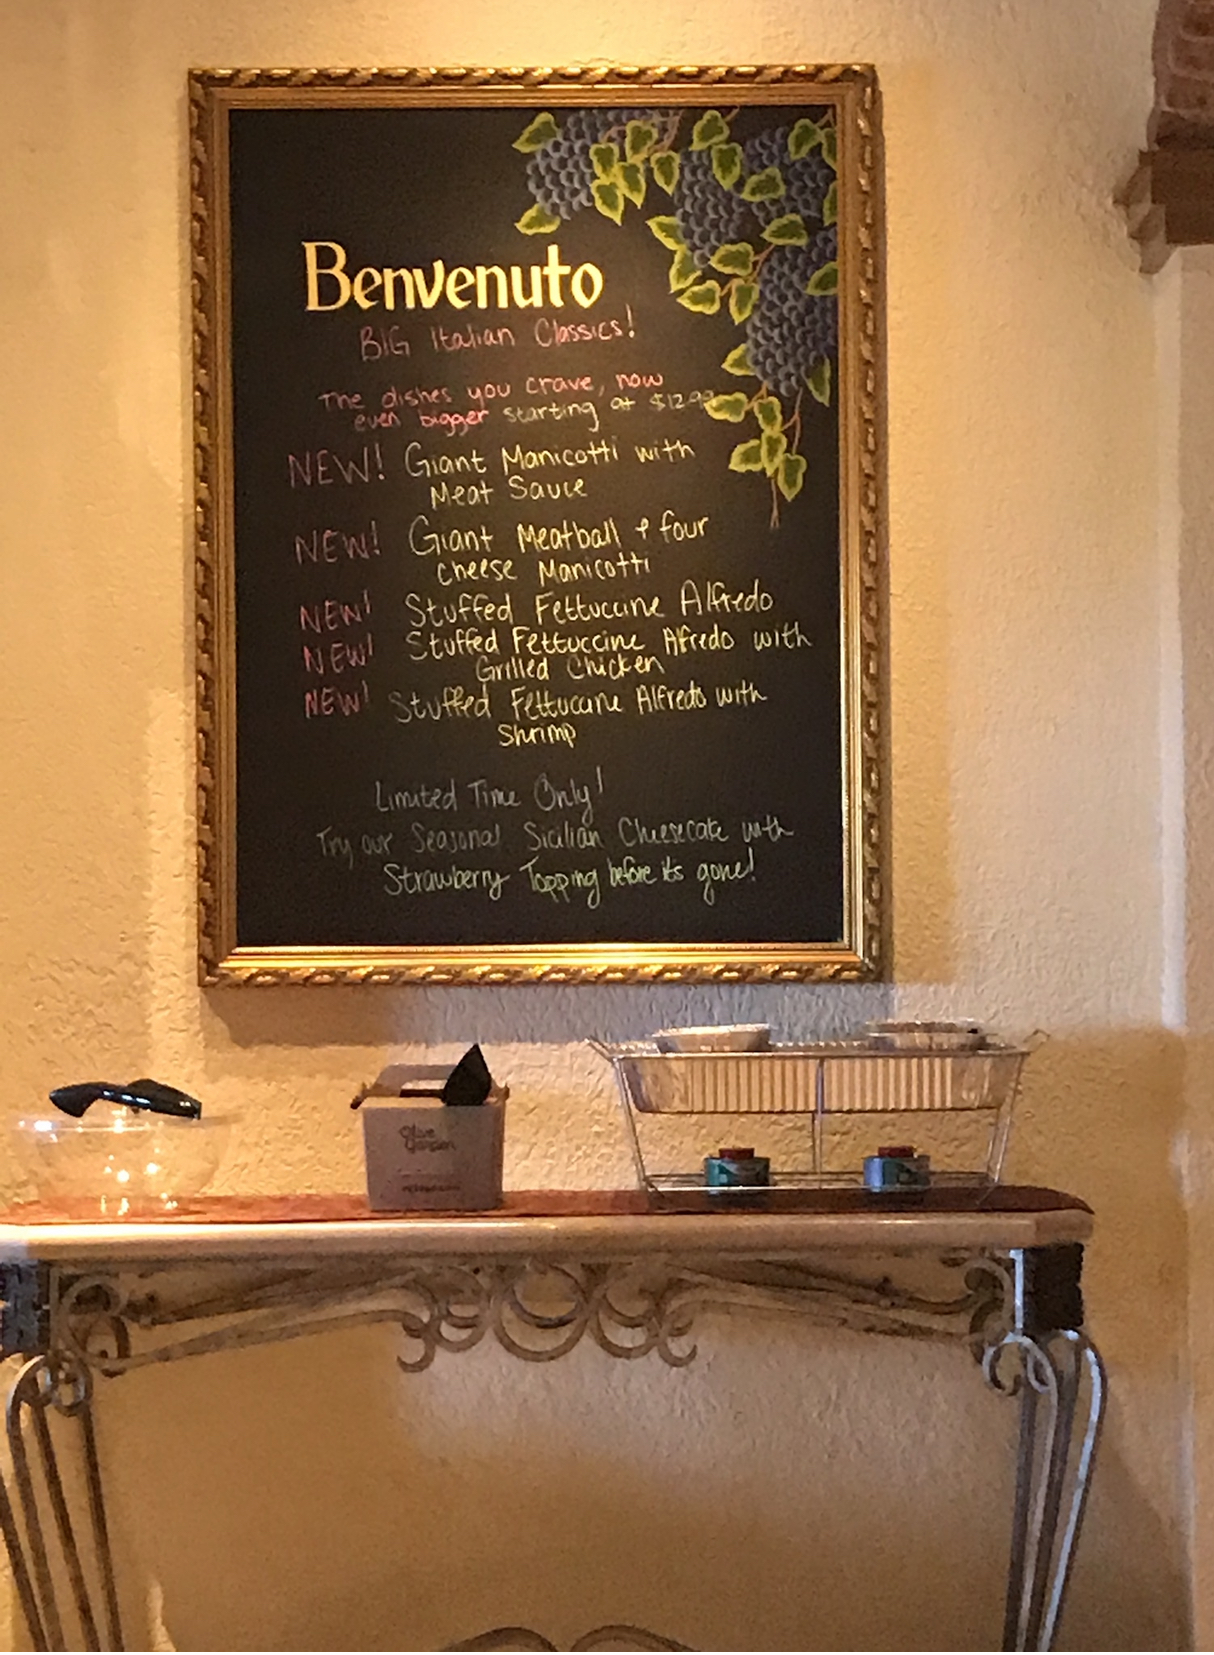 Benvenuto
BIG Italian Classics!
The dishes you crave, now
even bigger starting at $12.99
NEW! Giant Manicotti with
Meat Sauce
NEW! Giant Meatball & four
cheese Manicotti
NEW! Stuffed Fettuccine Alfredo
NEW! Stuffed Fettuccine Alfredo with
Grilled Chicken
NEW! Stuffed Fettuccine Alfredo with
Shrimp
Limited Time Only!
Try our Seasonal Sicilian Cheesecake with
Strawberry Topping before its gone!
Olive
Garden